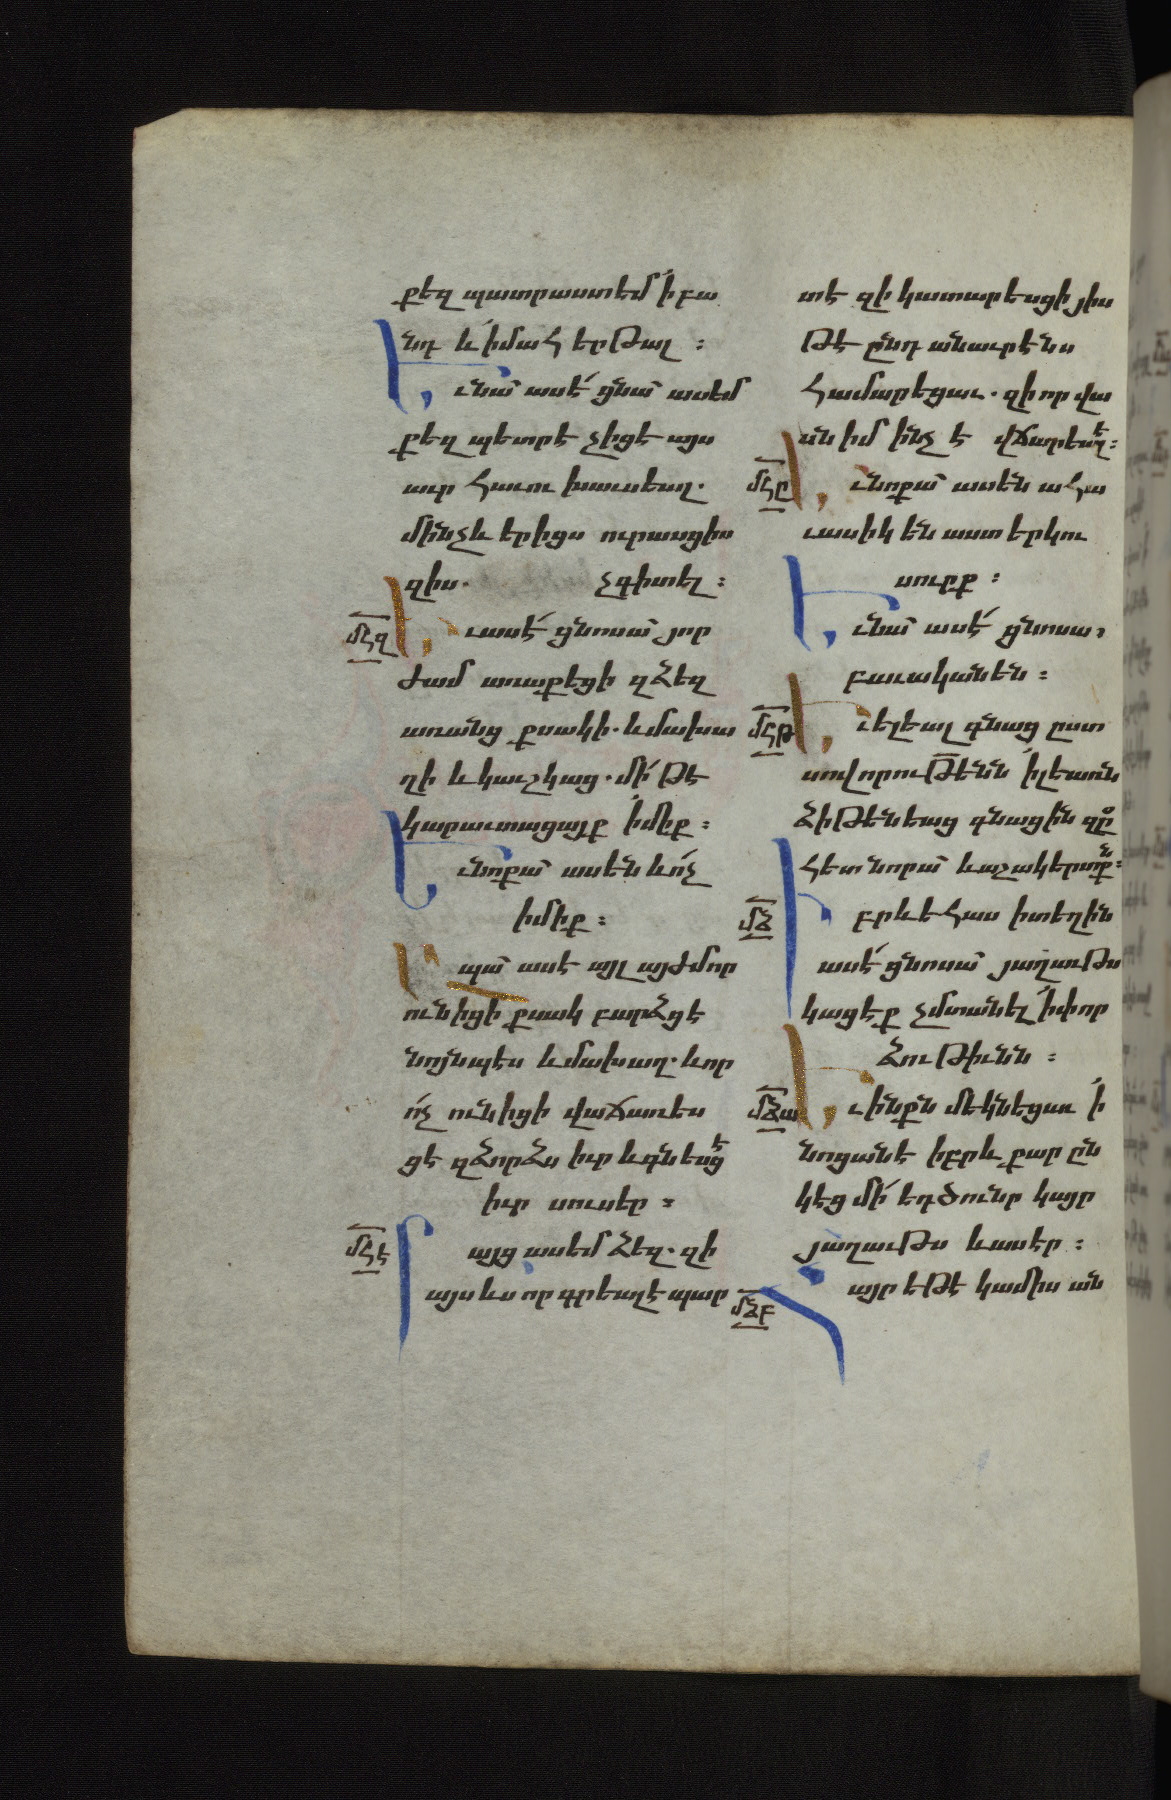 քեզ պատրաստեմ ի բա
նդ և ի մահ երթալ :
Եւ նա ասէ ցնա ասեմ
քեզ պետրէ չիցէ այս
աւր հաւու խաւսեալ.
մինչև երիցս ուրասցիս
զիս. չգիտել :
մհզ Եւ ասէ ցնոսա յոր
ժամ առաքեցի զձեզ
առանց քսակի. և մախա
ղի և կաւշկաց. մի թէ
կարաւտացայք իմիք :
Եւ նոքա ասեն և ոչ
իմիք :
Ապա ասէ այլ այժմ որ
ունիցի քսակ բարձցէ
նոյնպէս և մախաղ. և որ
ոչ ունիցի վաճառես
ցէ զձորձս իւր և գնեսցէ
իւր սուսեր :
մհէ Բայց ասեմ ձեզ. զի
այս ևս որ գրեալ է պար
տէ զի կատարեսցի յիս
թէ ընդ անաւրէնս
համարեցաւ. զի որ վա
սն իմ ինչ է վճարեալ է :
մհը Եւ նոքա ասեն ահա
ւասիկ են աստ երկու
սուրք :
Եւ նա ասէ ցնոսա,
բաւական են :
մհթ Եւ ելեալ գնաց ըստ
սովորութենն ի լեառն
ձիթենեաց գնացին զը
հետ նորա և աշակերտքն :
մձ Իբրև եհաս ի տեղին
ասէ ցնոսա յաղաւթս
կացէք չմտանել ի փոր
ձութիւնն :
մձա Եւ ինքն մեկնեցաւ ի
նոցանէ իբրև քար ըն
կեց մի եդ ծունր կայր
յաղաւթս և ասէր :
մձբ Հայր եթէ կամիս ան